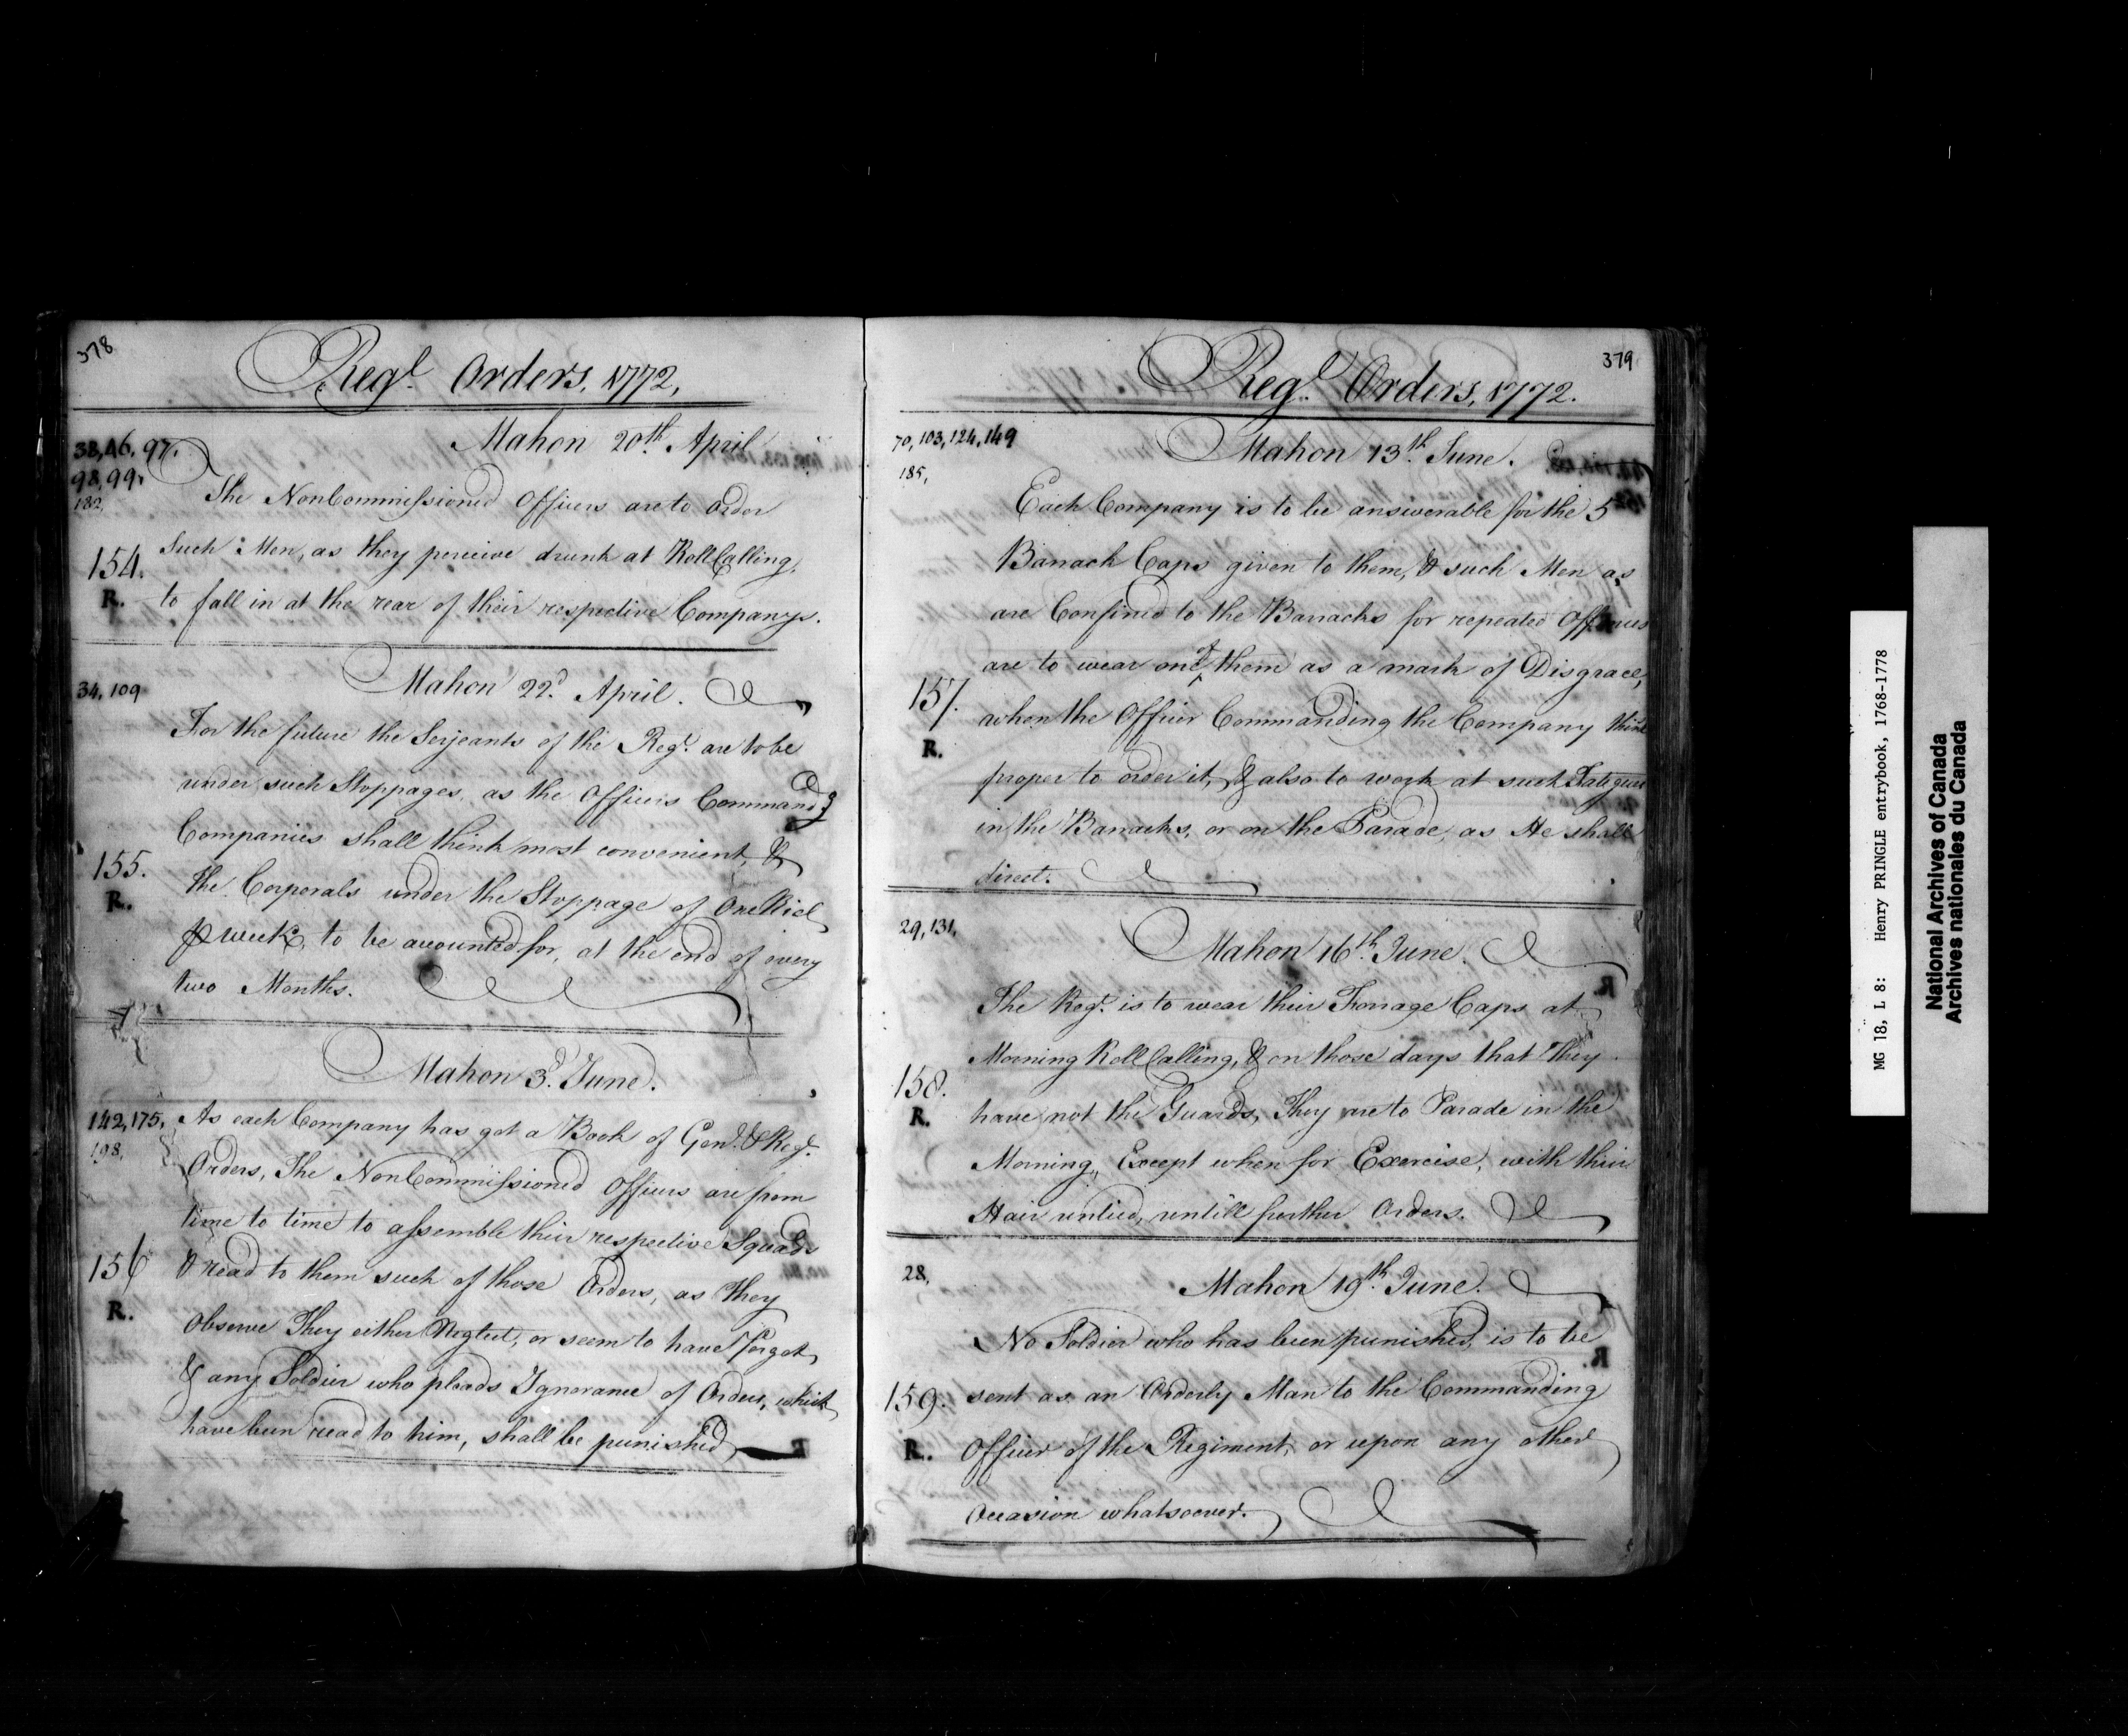 378
Regl. Orders, 1772,
38, 46, 97.
98, 99.
182,
Mahon 20th. April
The NonCommissioned Officers are to order
154.
such Men, as they perceive drunk at Roll Calling,
R.
to fall in at the rear of their respective Companys.
34, 109
Mahon 22d. April.
For the future the Serjeants of the Regt. are to be
under such Stoppages, as the Officers Commandg
Companies shall think most convenient, &
155.
R.
the Corporals under the Stoppage of One Riel
℔ week, to be accounted for, at the end of every
two Months.
Mahon 3d. June.
142, 175,
198,
As each Company has got a Book of Genl. & Regl.
Orders, The NonCommissioned Officers are from
time to time to assemble their respective Squads
156
R.
& read to them such of those Orders, as they
observe They either Neglect, or seem to have forgot,
& any Soldier who pleads Ignorance of Orders, which
have been read to him, shall be punished,
379
Regl. Orders, 1772.
70, 103, 124, 149
185,
Mahon 13th. June.
Each Company is to be answerable for the 5
Barrack Caps given to them, & such Men as
are Confined to the Barracks for repeated Offences
are to wear one of them as a mark of Disgrace,
157.
R.
when the Officer Commanding the Company thinks
proper to order it, & also to work at such Fatigues
in the Barracks, or on the Parade, as He shall
direct.
29, 131,
Mahon 16th. June.
The Regt. is to wear their Forrage Caps at
Morning Roll Calling, & on those days that They
158.
R.
have not the Guards, They are to Parade in the
Morning, Except when for Exercise, with their
Hair untied, untill further Orders.
28,
Mahon 19th. June.
No Soldier who has been punished, is to be
159.
sent as an Orderly Man to the Commanding
R.
Officer of the Regiment, or upon any other
Occasion whatsoever.
MG 18, L 8: Henry PRINGLE entrybook, 1768-1778
National Archives of Canada
Archives nationales du Canada